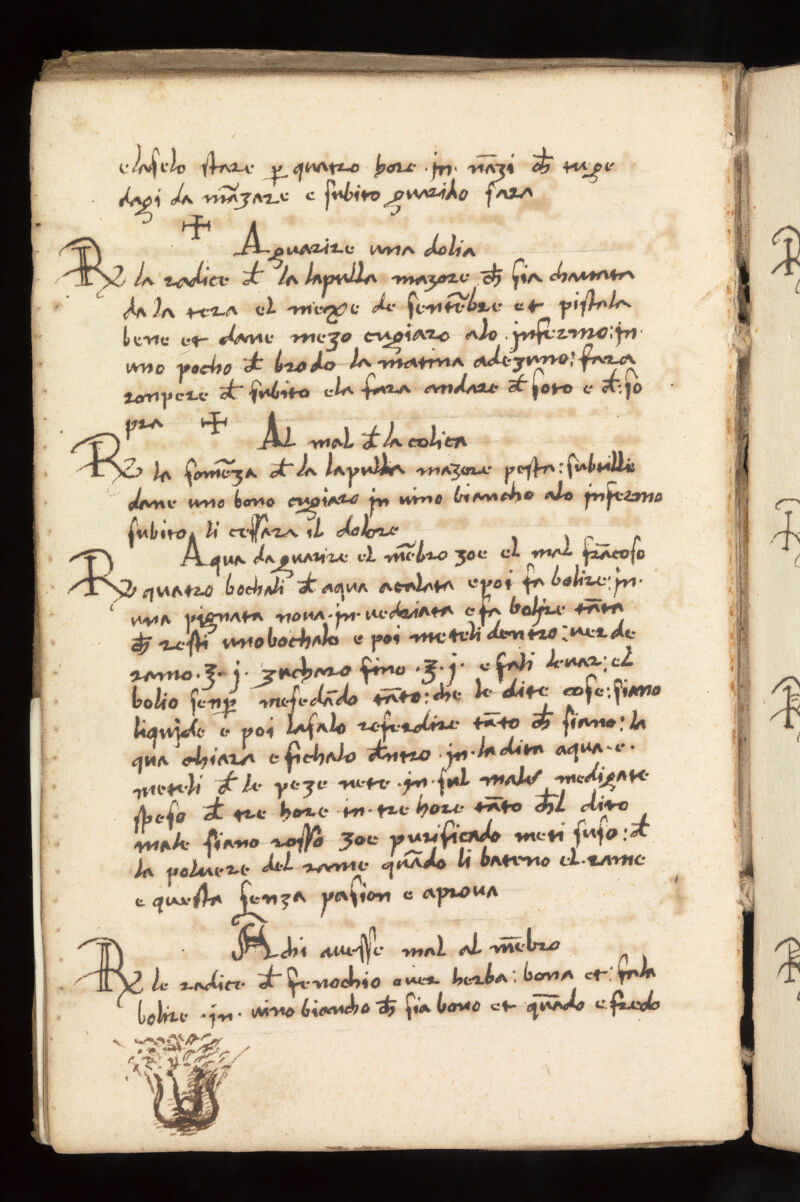 elaselo stare p quatro hore · in · nāzi ch tu ge
dagi da māzare e subito guarito sara
A guarire una dolia
R la radice d la lapulla mazore ch sia chauata
da la tera el mexe de sentēbre et pistala
bene et dane mezo cugiaro alo infermo : in ·
uno pocho d brodo la matina adezuno : fara
ronpere d subito ela fara andare d soto e d : so
pra
Al mal d la colica
R la somēza d la lapulla mazore pesta : subtille
dane uno bono cugiaro in uino biancho alo infermo
subito li cessara il dolore
Aqua da guarire el mēbro zoe el mal frācoso
R quatro bochali d aqua acalata epoi fa bolire : in ·
una pignata noua · in · uedriata e fa bolire tāta
ch resti uno bochalo e poi meteli dentro : uer de
ramo · ℥ · j · zucharo fino · ℥ · j · e fali leuar : el
bolio senp mesedādo tāto : che le dite cose : siano
liquide e poi lasalo refredire tāto ch siano : la
qua chiara e fichalo dntro · in · la dita aqua · e ·
meteli d le peze nete · in · sul male medigate
speso d tre hore · in · tre hore tāto chl dito
male siano rosso zoe purificado meti suso : d
la poluere del rame quādo li bateno el · rame
e questa senza pasion e aproua
A chi auesse mal al mēbro
R le radice d fenochio ouer herba : bona et : fala
bolire · in · uino biancho ch sia bono et quādo e fredo